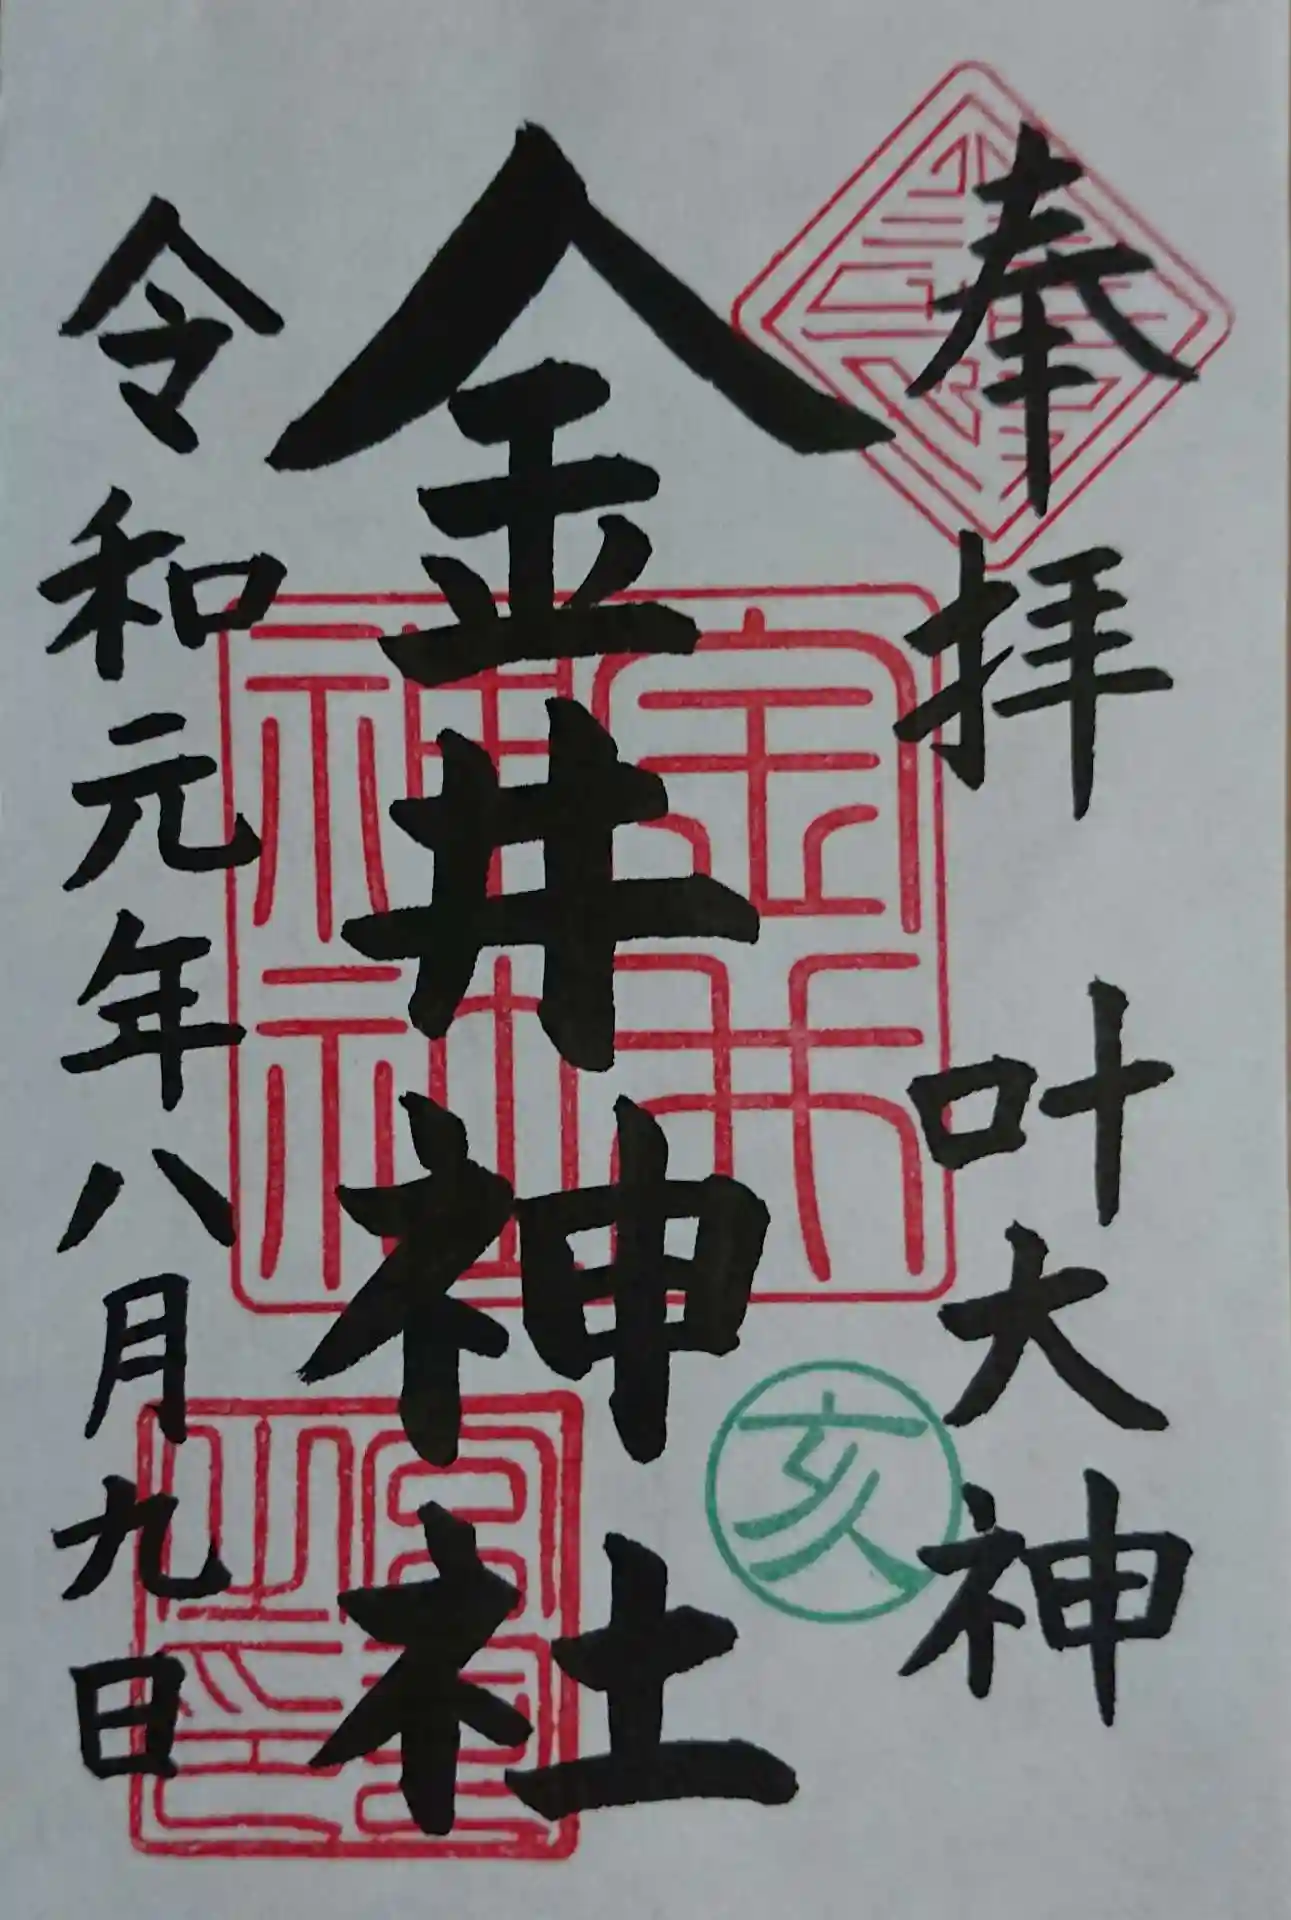 奉拝　叶大神
金井神社
令和元年八月九日
金井神社
亥